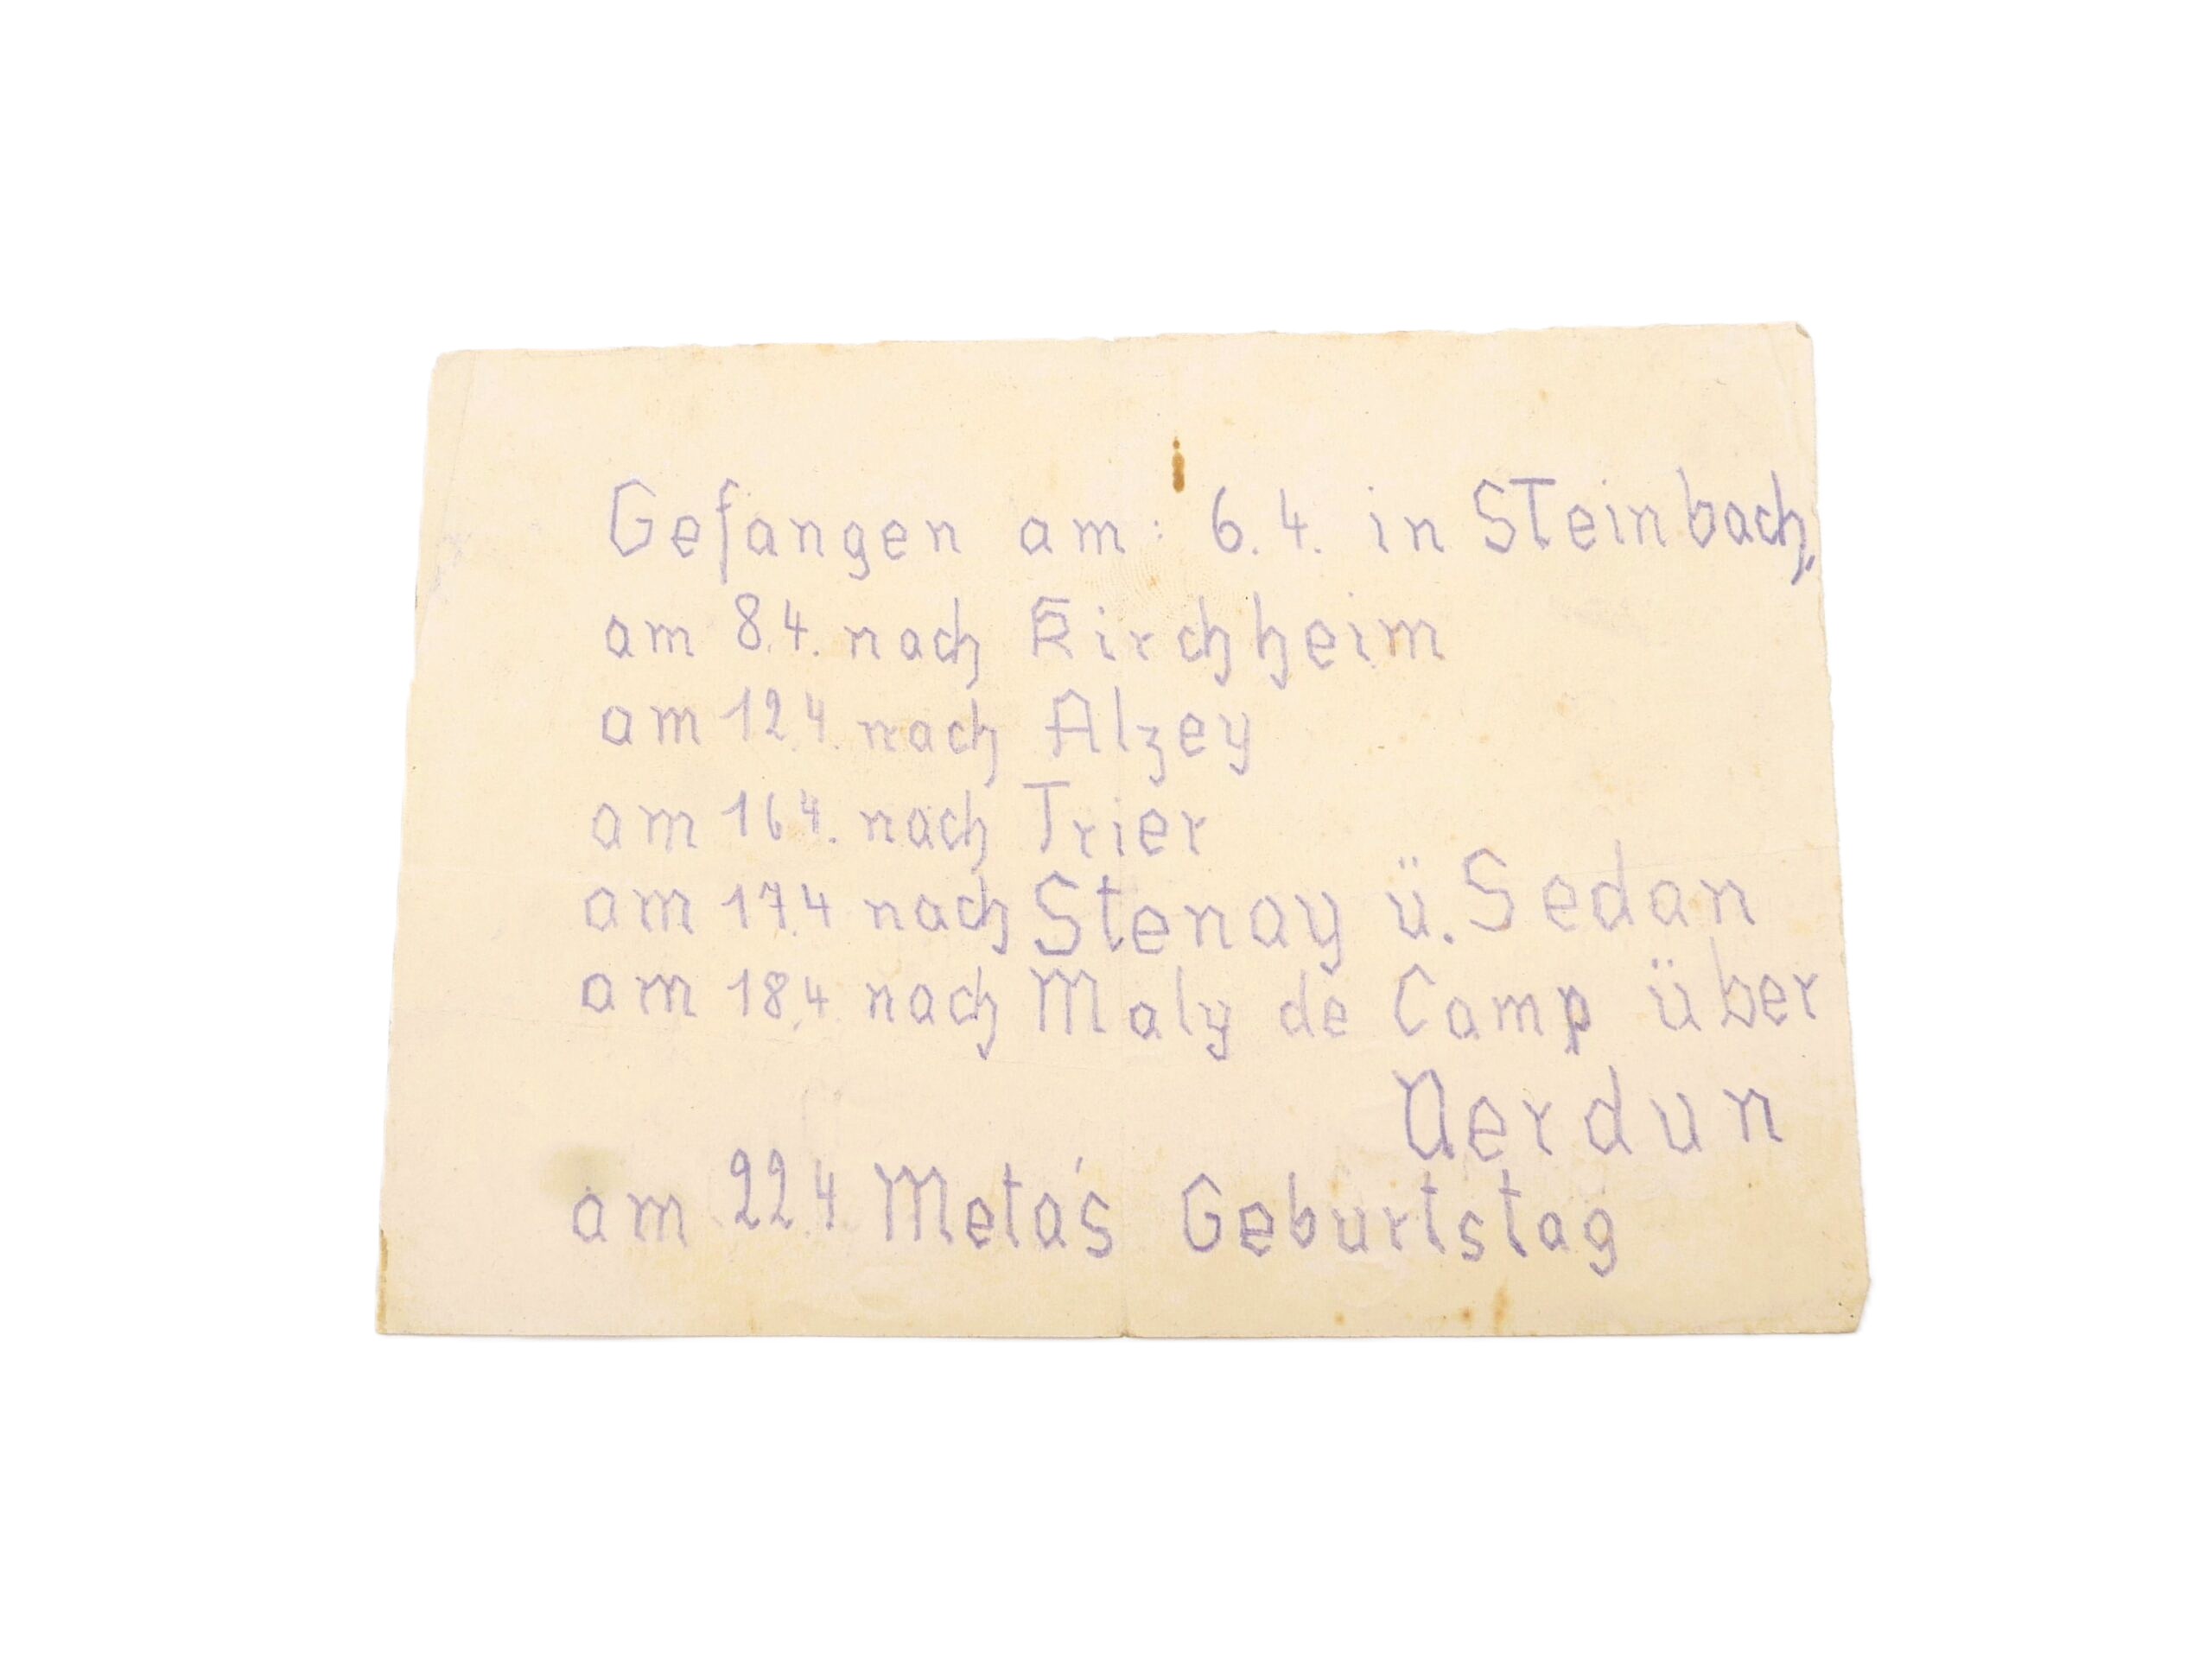 Gefangen am: 6.4. in Steinbach,
am 8.4. nach Kirchheim
am 12.4. nach Alzey
am 16.4. nach Trier
am 17.4 nach Stenay ü. Sedan
am 18.4 nach Maly de Camp über
Verdun
am 22.4 Meta's Geburtstag